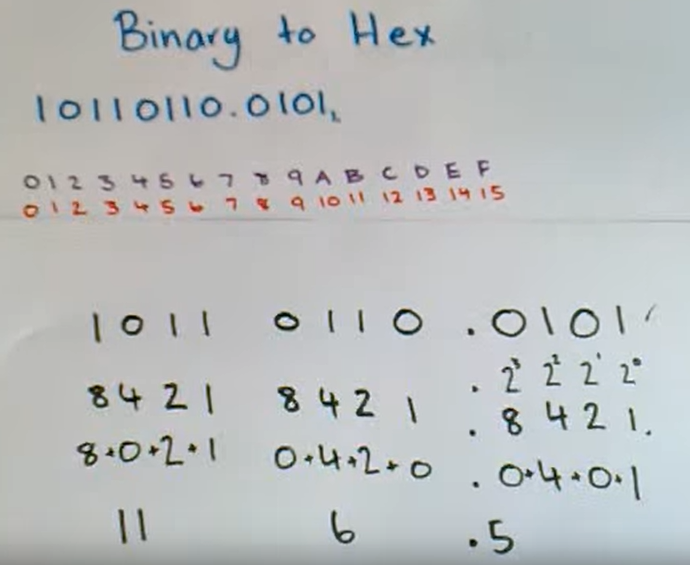 Binary to Hex
10110110.0101₂
0 1 2 3 4 5 6 7 8 9 A B C D E F
0 1 2 3 4 5 6 7 8 9 10 11 12 13 14 15
1 0 1 1 0 1 1 0 . 0 1 0 1
. 2³ 2² 2¹ 2⁰
8 4 2 1 8 4 2 1 . 8 4 2 1.
8+0+2+1 0+4+2+0 . 0+4+0+1
11 6 .5